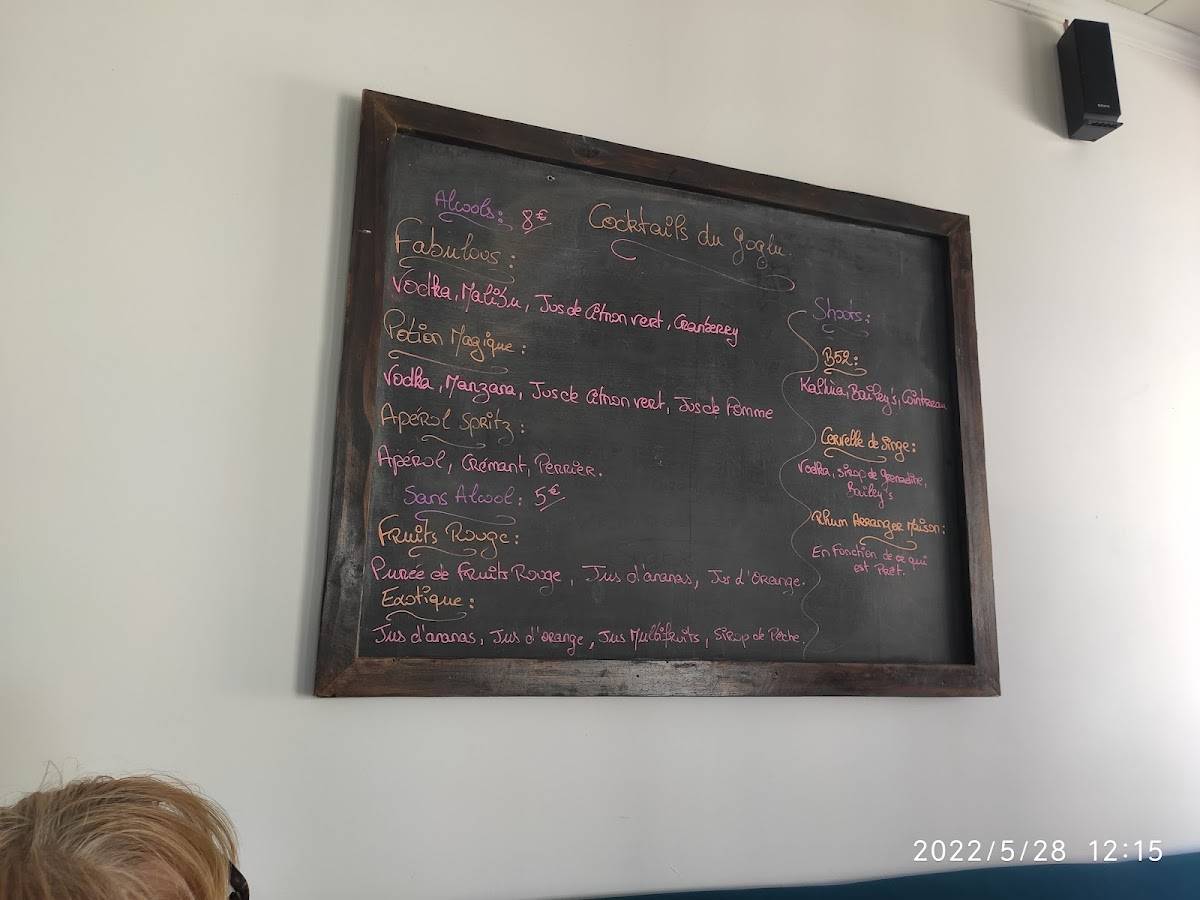 Cocktails du Goglu.
Alcools: 8€
Fabulous:
Vodka, Malibu, Jus de Citron vert, Cranberry
Potion Magique:
Vodka, Manzana, Jus de Citron vert, Jus de Pomme
Apérol Spritz:
Apérol, Crémant, Perrier.
Sans Alcool: 5€
Fruits Rouge:
Purée de Fruits Rouge, Jus d'ananas, Jus d'Orange.
Exotique:
Jus d'ananas, Jus d'orange, Jus Multifruits, Sirop de Pêche.
Shoots:
B52:
Kalhua, Bailey's, Cointreau
Cervelle de Singe:
Vodka, Sirop de Grenadine,
Bailey's
Rhum Arranger Maison:
En Fonction de ce qui
est Prêt.
2022/5/28 12:15